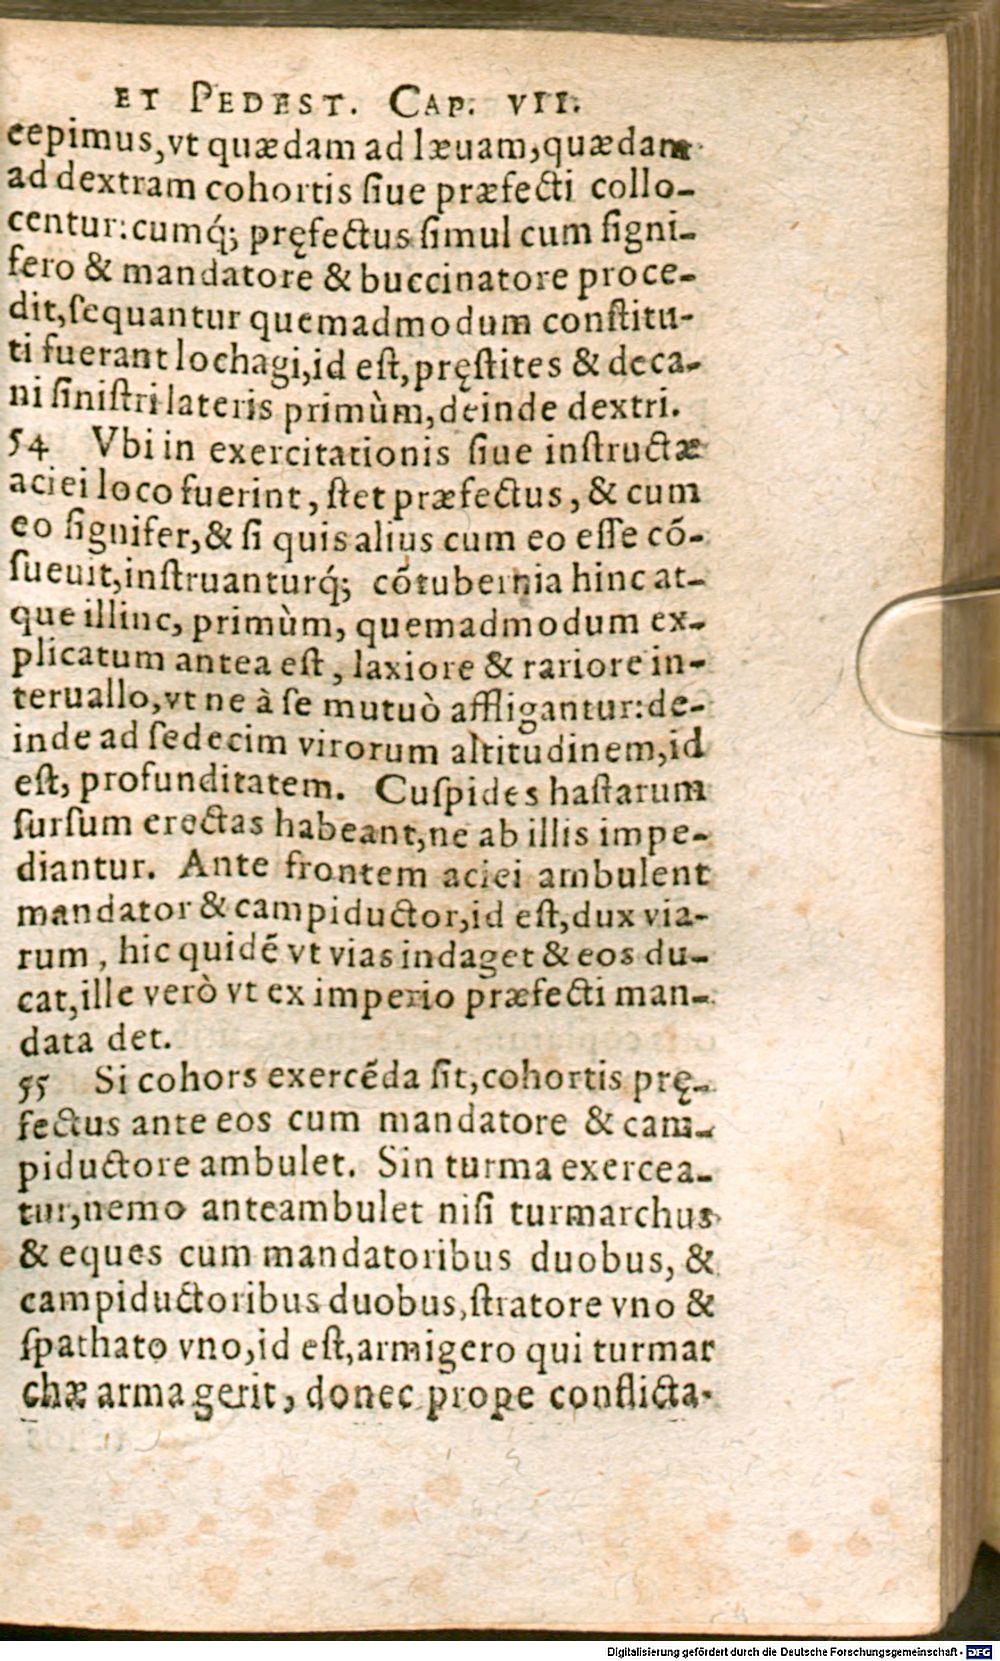 ET PEDEST. CAP. VII.
cepimus,vt quædam ad læuam,quædam
ad dextram cohortis ſiue præfecti collo-
centur:cumq́; pręfectus ſimul cum ſigni-
fero & mandatore & buccinatore proce-
dit,ſequantur quemadmodum conſtitu-
ti fuerant lochagi,id eſt,pręſtites & deca-
ni ſiniſtri lateris primùm,deinde dextri.
54 Vbi in exercitationis ſiue inſtructæ
aciei loco fuerint, ſtet præfectus, & cum
eo ſignifer,& ſi quis alius cum eo eſſe cõ-
ſueuit,inſtruanturq́; cõtubernia hinc at-
que illinc, primùm, quemadmodum ex-
plicatum antea eſt, laxiore & rariore in-
teruallo,vt ne à ſe mutuò affligantur:de-
inde ad ſedecim virorum altitudinem,id
eſt, profunditatem. Cuſpides haſtarum
ſurſum erectas habeant,ne ab illis impe-
diantur. Ante frontem aciei ambulent
mandator & campiductor,id eſt,dux via-
rum, hic quidẽ vt vias indaget & eos du-
cat,ille verò vt ex imperio præfecti man-
data det.
55 Si cohors exercẽda ſit,cohortis prę-
fectus ante eos cum mandatore & cam-
piductore ambulet. Sin turma exercea-
tur,nemo anteambulet niſi turmarchus
& eques cum mandatoribus duobus, &
campiductoribus duobus,ſtratore vno &
ſpathato vno,id eſt,armigero qui turmar
chæ arma gerit, donec prope conflicta-
Digitalisierung gefördert durch die Deutsche Forschungsgemeinschaft - DFG